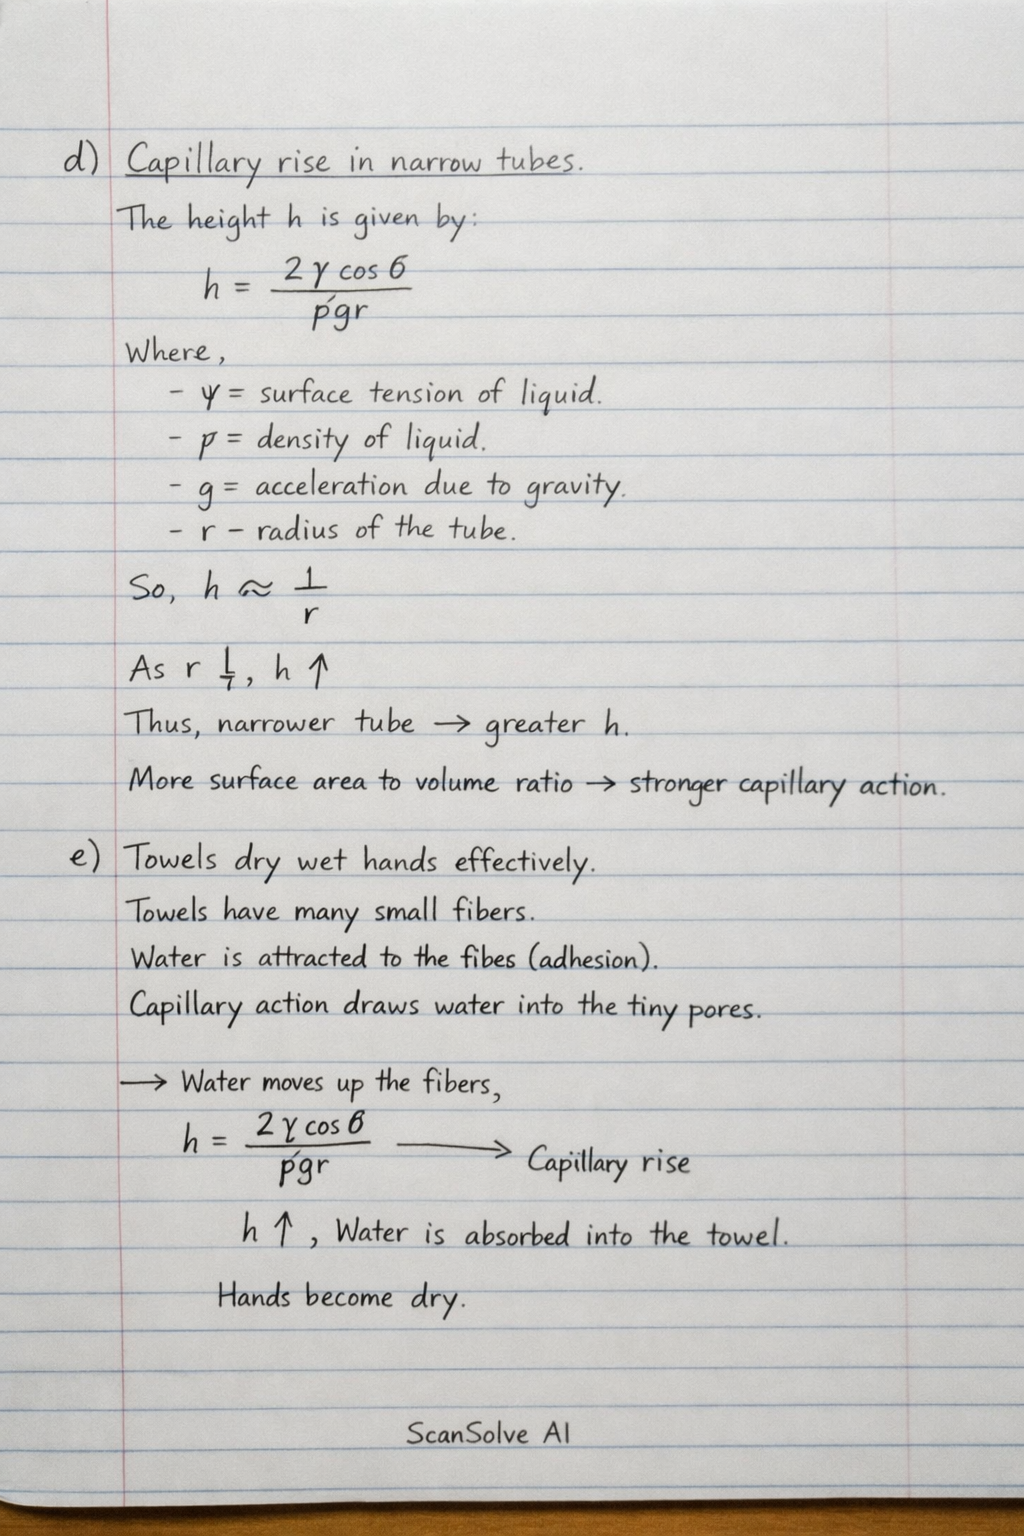 d) Capillary rise in narrow tubes.
The height h is given by:
h = 2 γ cos 6 / ρgr
Where,
- ψ = surface tension of liquid.
- ρ = density of liquid.
- g = acceleration due to gravity.
- r – radius of the tube.
So, h ≈ 1 / r
As r , h ↑
Thus, narrower tube → greater h.
More surface area to volume ratio → stronger capillary action.
e) Towels dry wet hands effectively.
Towels have many small fibers.
Water is attracted to the fibes (adhesion).
Capillary action draws water into the tiny pores.
→ Water moves up the fibers,
h = 2 γ cos 6 / ρgr → Capillary rise
h ↑ , Water is absorbed into the towel.
Hands become dry.
ScanSolve AI